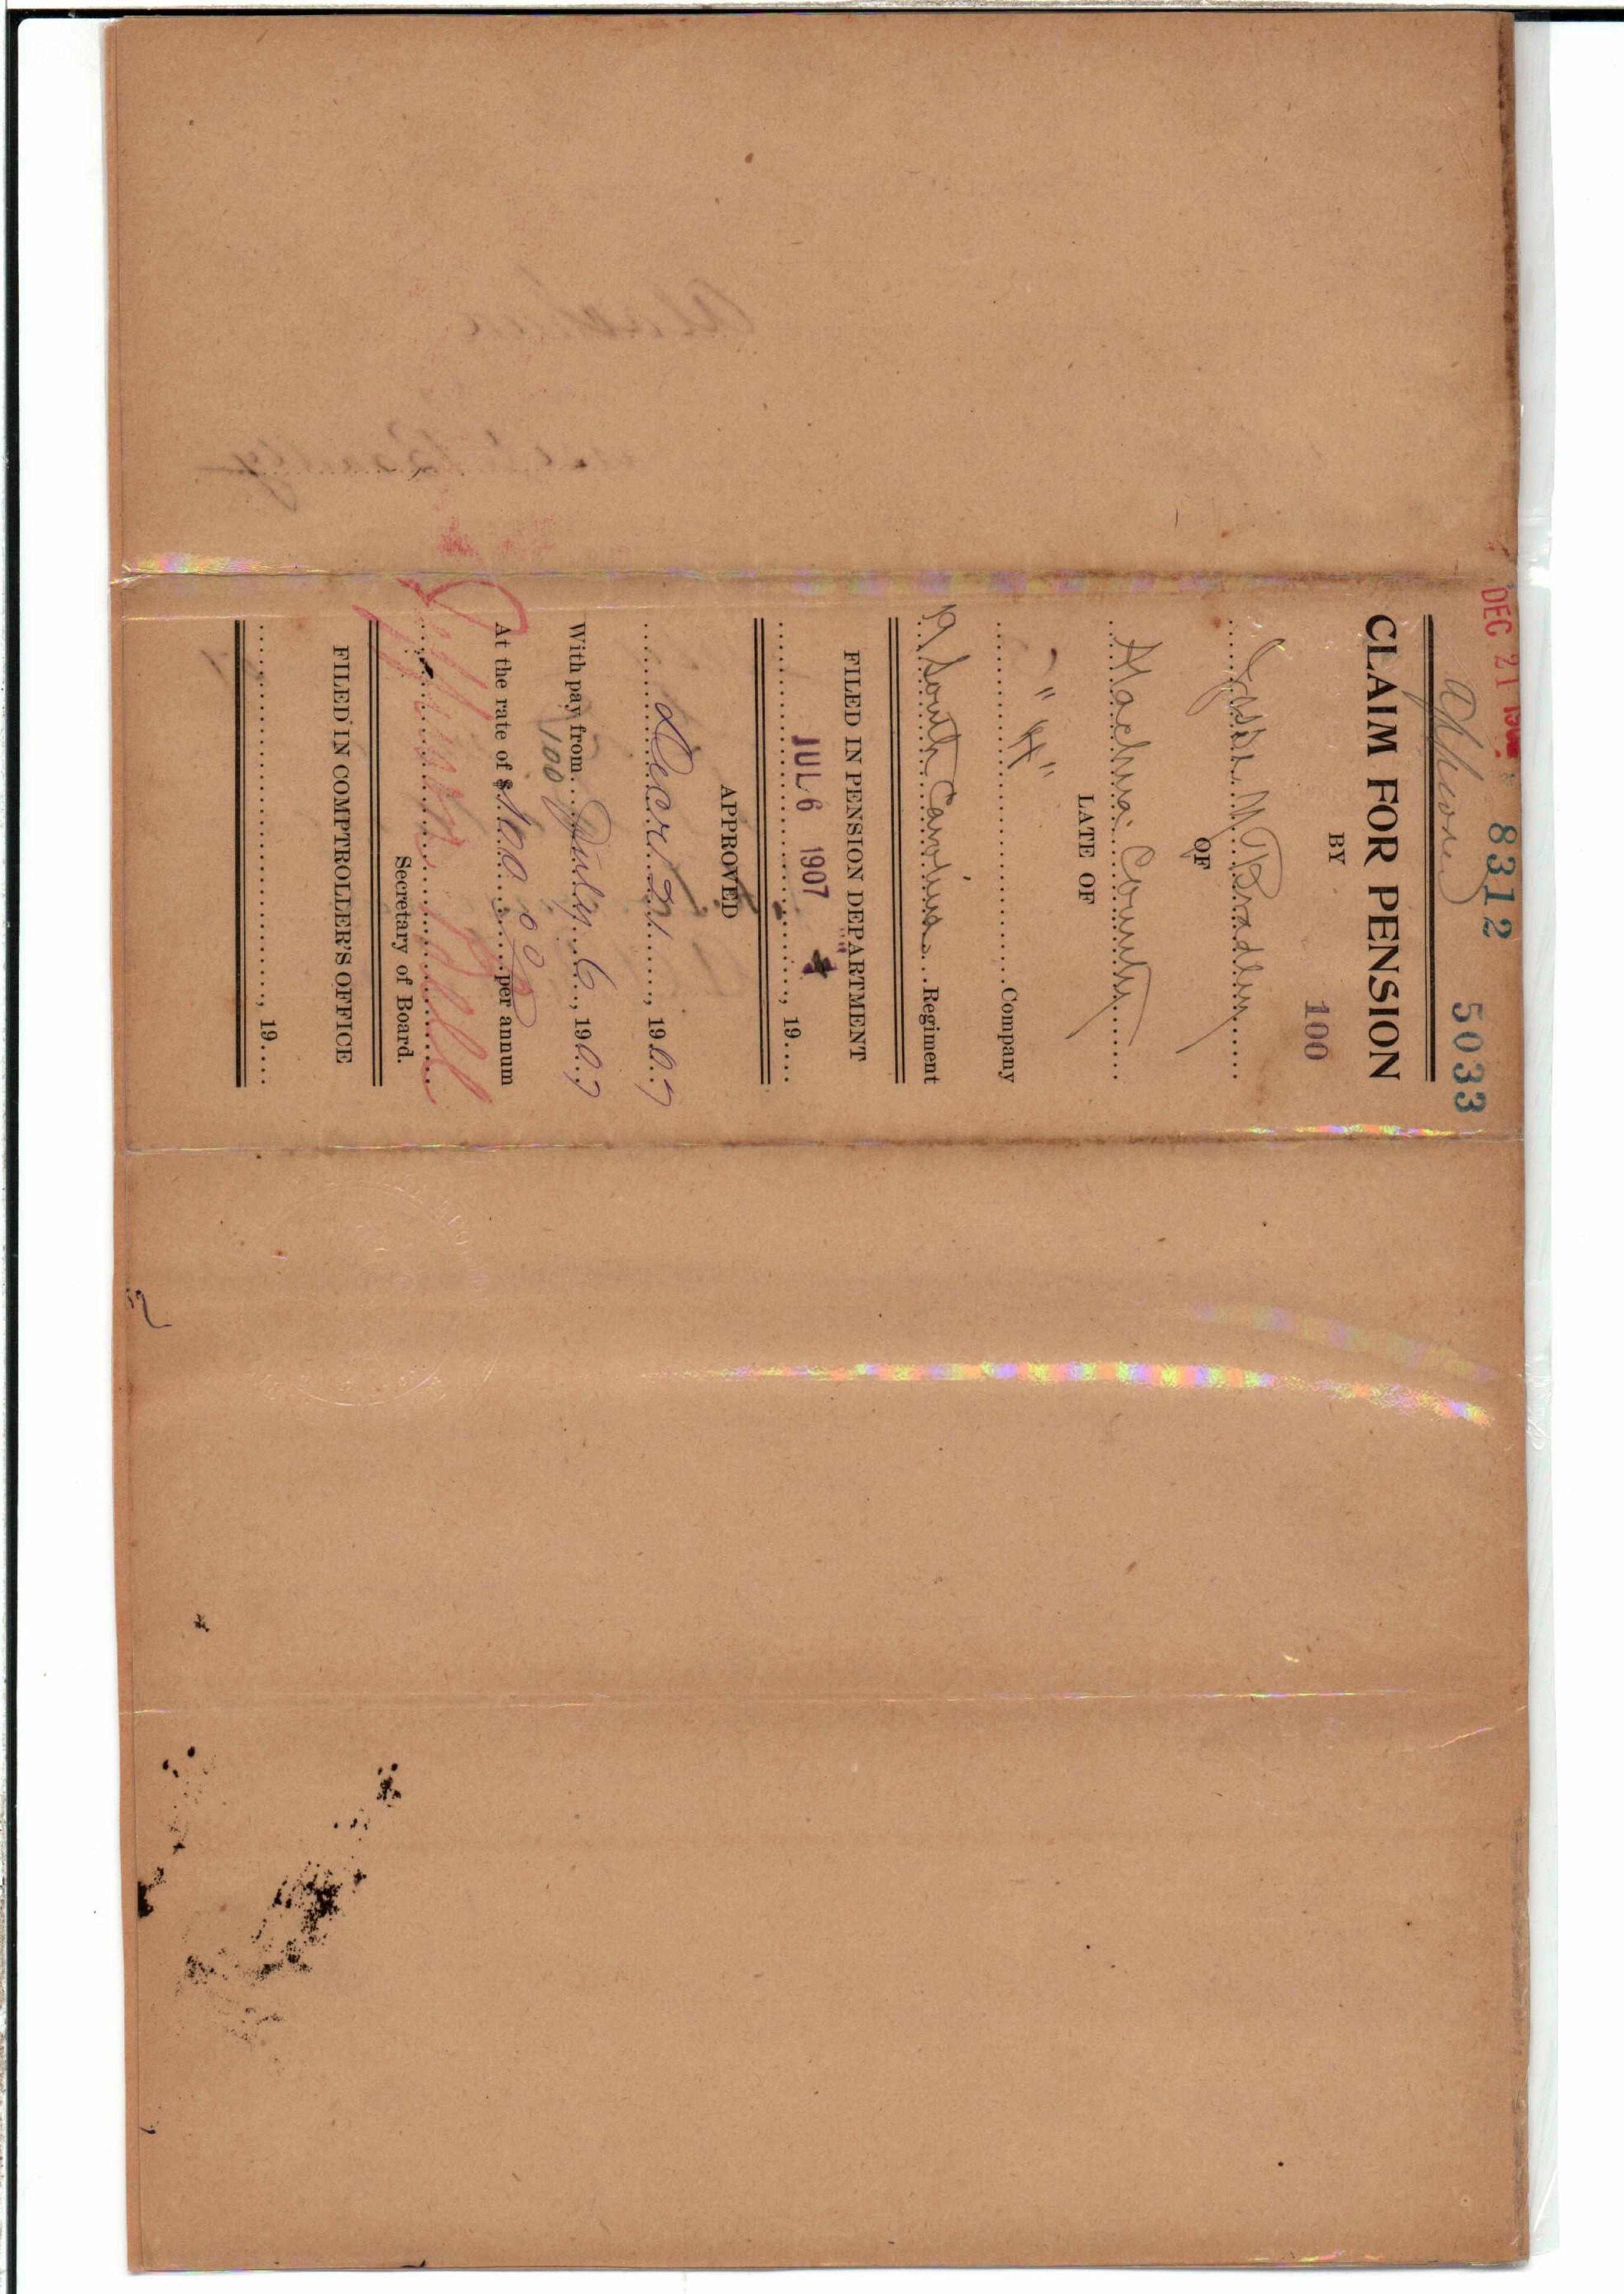 DEC 21 8312 5033
CLAIM FOR PENSION
BY
100
M Bradley
OF
Alachua County
LATE OF
" H " Company
19 South Carolina Regiment
FILED IN PENSION DEPARTMENT
JUL 6 1907
, 19
APPROVED
Decr 21, 1907
With pay from July 6, 1907
100
At the rate of $100 00 per annum
Secretary of Board.
FILED IN COMPTROLLER'S OFFICE
, 19